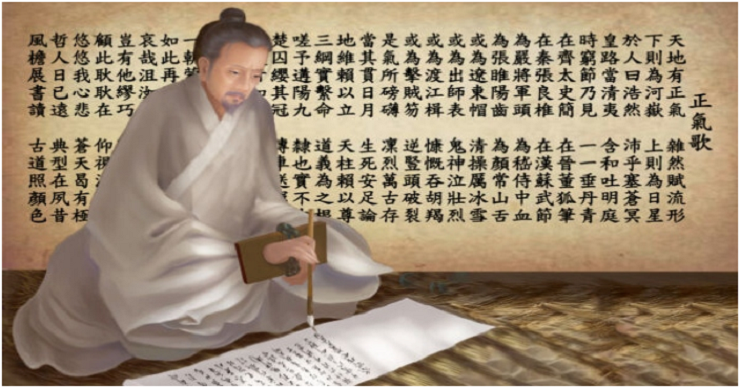 正氣歌
天地有正氣 雜然賦流形
下則為河嶽 上則為日星
於人曰浩然 沛乎塞蒼冥
皇路當清夷 含和吐明庭
時窮節乃見 一一垂丹青
在齊太史簡 在晉董狐筆
在秦張良椎 在漢蘇武節
為嚴將軍頭 為嵇侍中血
為張睢陽齒 為顏常山舌
或為遼東帽 清操厲冰雪
或為出師表 鬼神泣壯烈
或為渡江楫 慷慨吞胡羯
或為擊賊笏 逆豎頭破裂
是氣所磅礴 凜烈萬古存
當其貫日月 生死安足論
地維賴以立 天柱賴以尊
三綱實繫命 道義為之根
嗟予遘陽九 隸也實不
楚囚纓其冠 傳車送
一朝
如此再
哀哉沮
豈有他繆巧
顧此耿耿在 仰視
悠悠我心悲 蒼天曷有極
哲人日已遠 典型在夙昔
風檐展書讀 古道照顏色